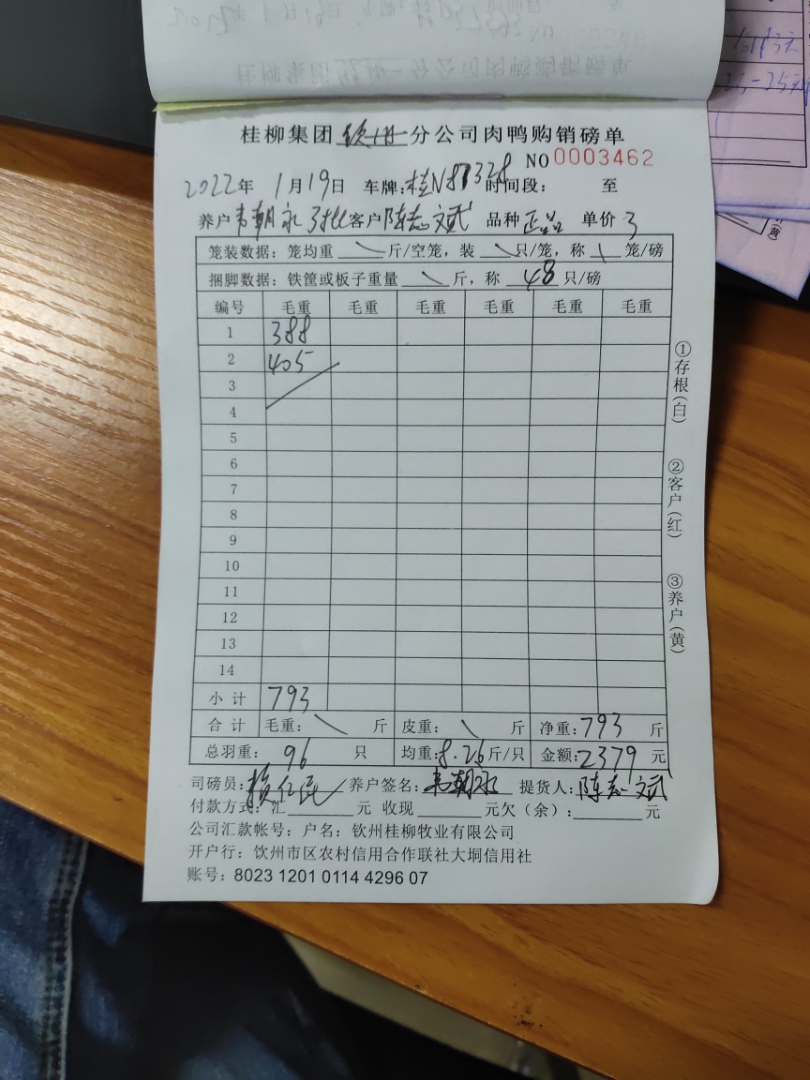 桂柳集团 钦州 分公司肉鸭购销磅单
NO 0003462
2022年 1月19日 车牌:桂N87328 时间段: 至
养户 韦朝永 3批 客户 陈志文武 品种 正品 单价 3
笼装数据: 笼均重 \ 斤/空笼, 装 \ 只/笼, 称 \ 笼/磅
捆脚数据: 铁筐或板子重量 \ 斤, 称 48 只/磅
编号 毛重 毛重 毛重 毛重 毛重 毛重
1 388
2 405
3
4
5
6
7
8
9
10
11
12
13
14
小 计 793
合 计 毛重: \ 斤 皮重: \ 斤 净重: 793 斤
总羽重: 96 只 均重: 8.26 斤/只 金额: 2379 元
司磅员: 养户签名: 韦朝永 提货人: 陈志文武
付款方式: 汇______元 收现______元欠(余):______元
公司汇款帐号: 户名: 钦州桂柳牧业有限公司
开户行: 钦州市区农村信用合作联社大垌信用社
账号: 8023 1201 0114 4296 07
①存根(白)
②客户(红)
③养户(黄)